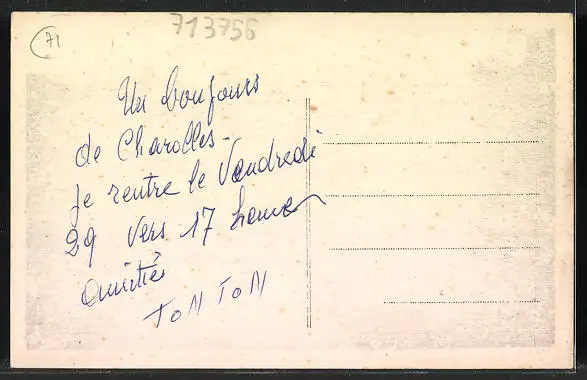 71
713756
Un bonjours
de Charolles -
je rentre le Vendredi
29 vers 17 heures
Amitiés
TONTON